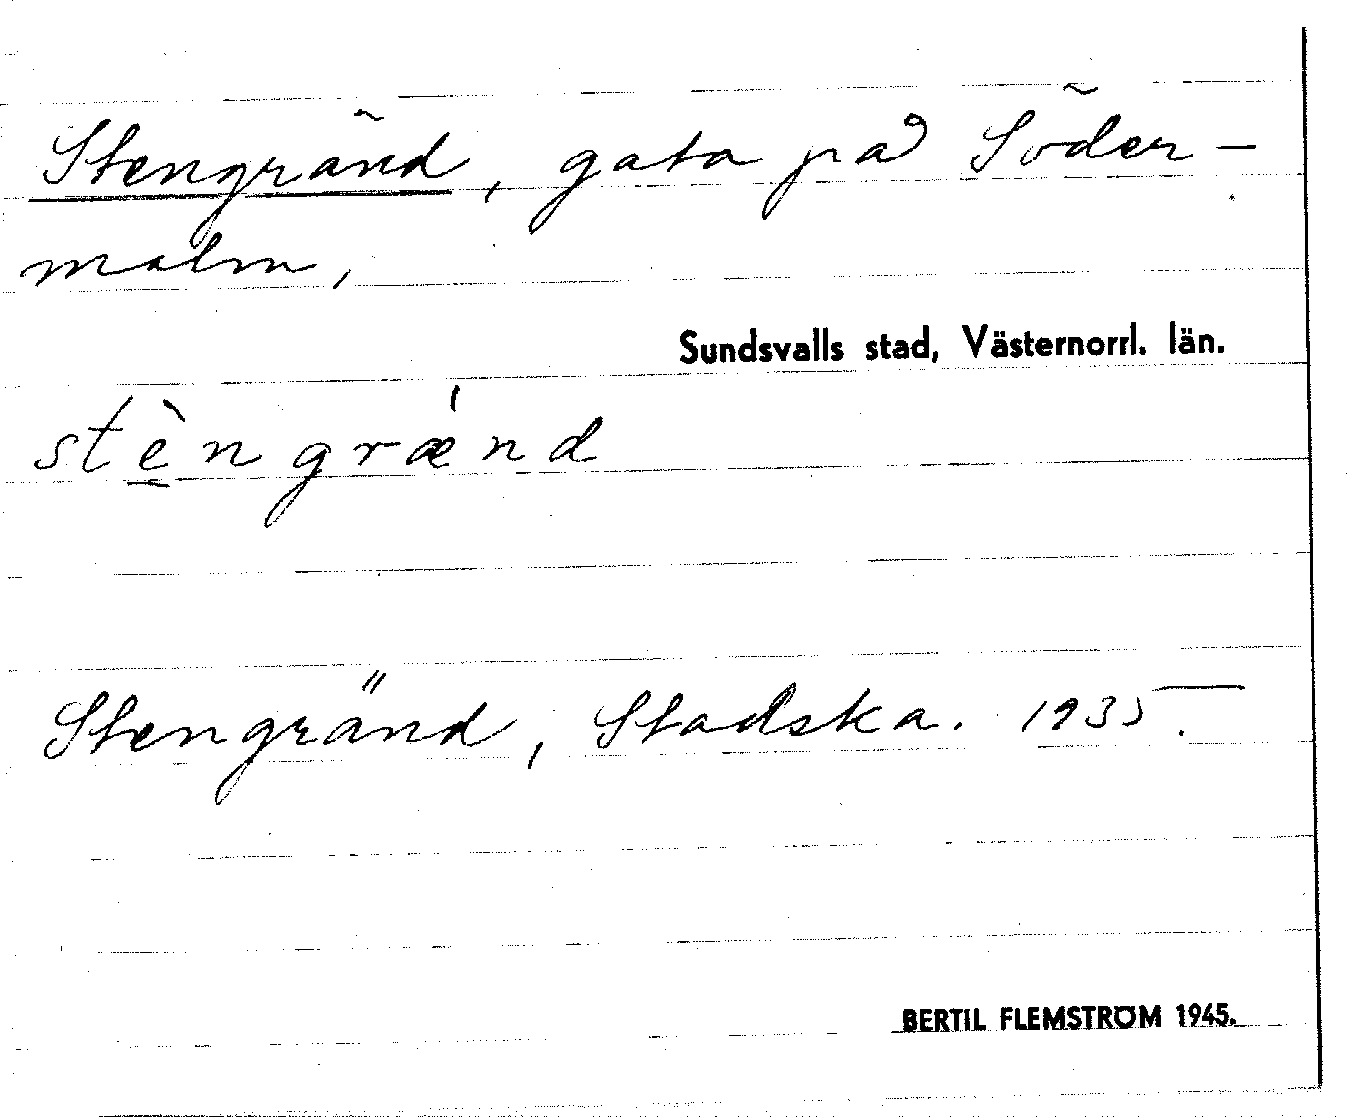 Stengränd, gata på Söder-
malm,
Sundsvalls stad, Västernorrl. län.
stè̱ngræ̍nd
Stengränd, Stadska. 1935.
BERTIL FLEMSTRÖM 1945.